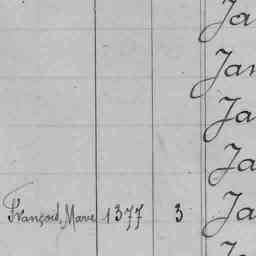 Ja
Jan
Ja
Ja
François, Marie 1377 3 Ja